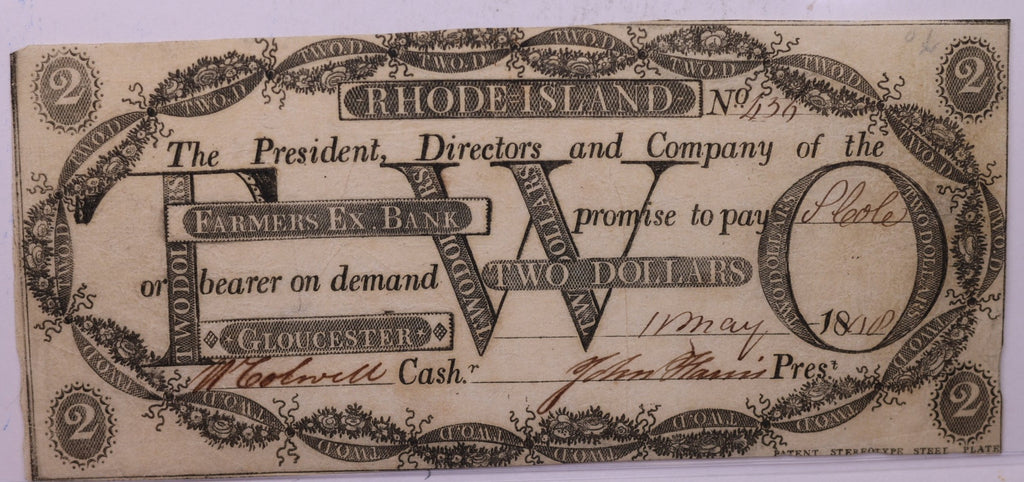 2 TWO.D TWO.D TWO.D TWO.D TWO.D 2
RHODE-ISLAND No 436
The President, Directors and Company of the
TWO
FARMERS EX BANK promise to pay S Cole
or bearer on demand TWO DOLLARS
GLOUCESTER 11 May 1808
W Colwell Cash.r John Harris Prest
2 TWO.D TWO.D TWO.D TWO.D 2
PATENT STEREOTYPE STEEL PLATE